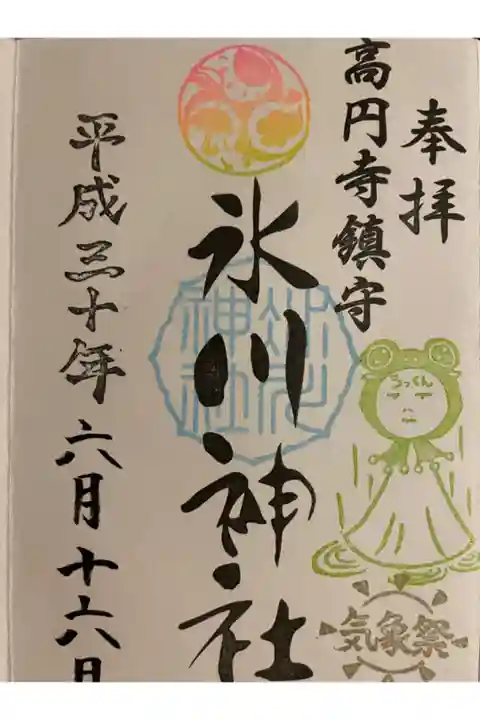 奉拝
高円寺鎮守
氷川神社
氷川
神社
気象祭
平成三十年六月十六日